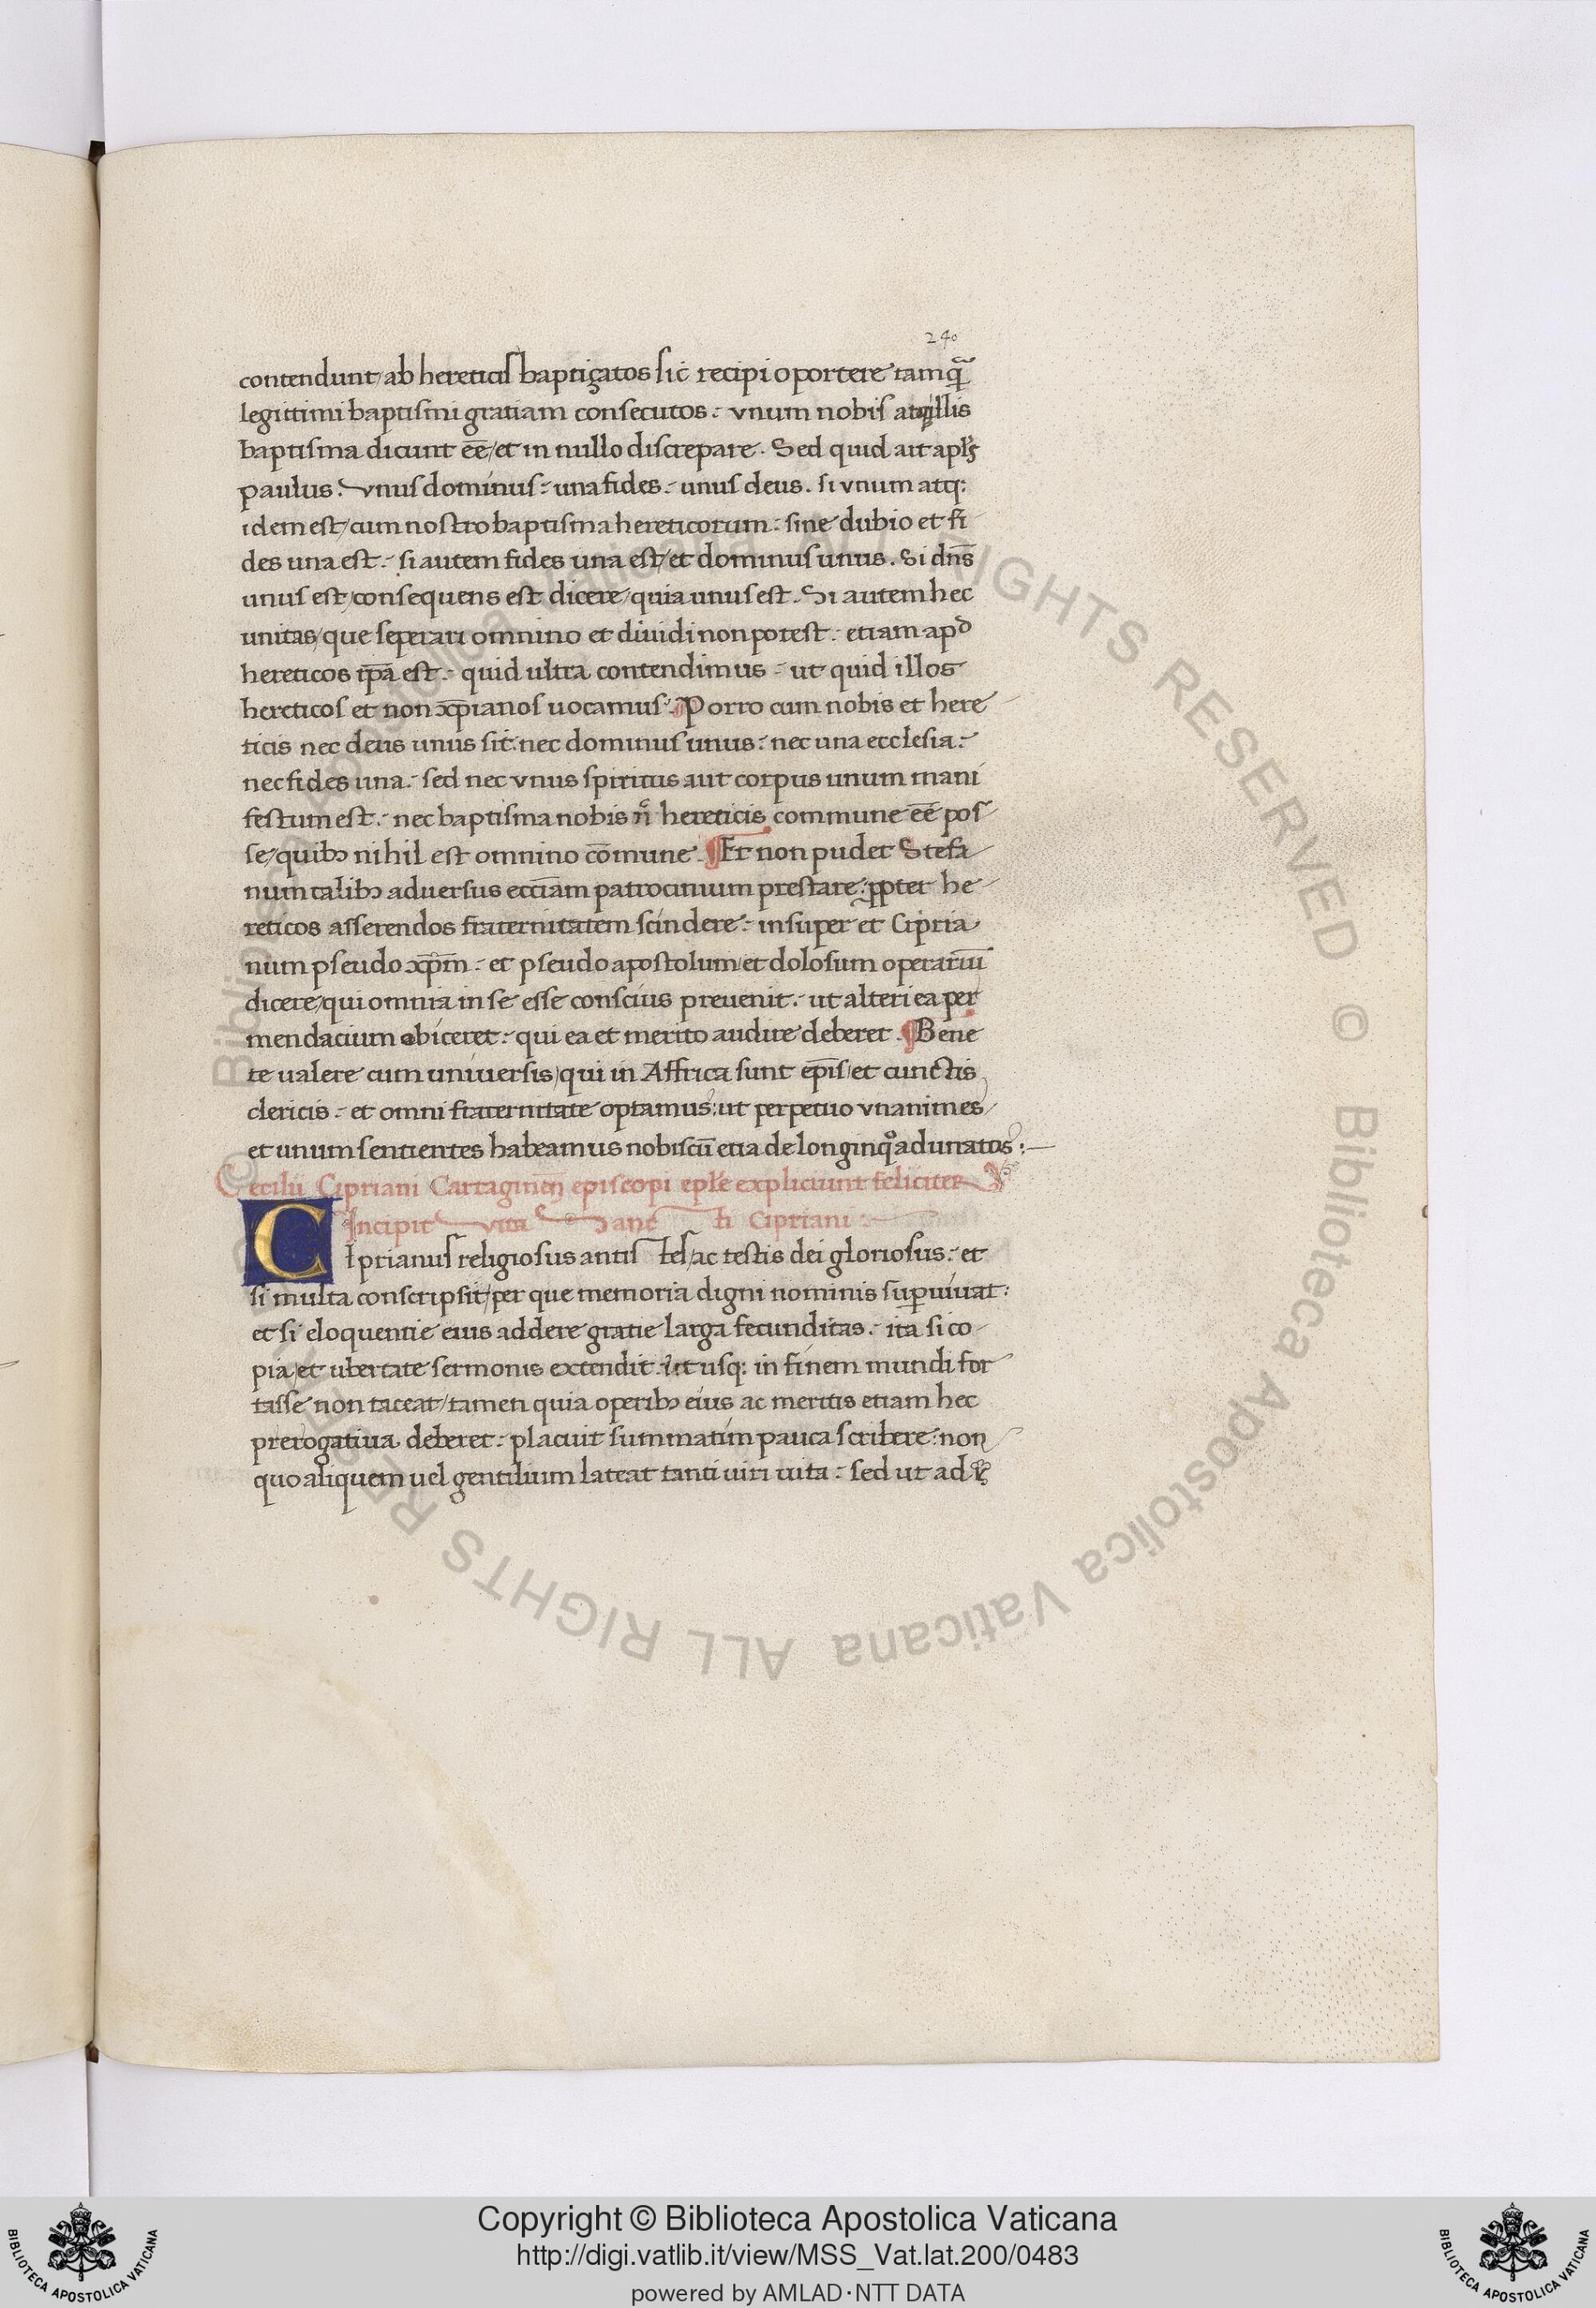 240
contendunt/ab hereticis baptiçatos sic recipi oportere tamq̃
legittimi baptismi gratiam consecutos:- vnum nobis atq; illis
baptisma dicunt ēē/et in nullo discrepare. Sed quid ait apl's
paulus. vnus dominus:- una fides:- unus deus. si vnum atq:
idem est/cum nostro baptisma hereticorum:- sine dubio et fi
des una est:- si autem fides una est/et dominus unus. Si dn̄s
unus est/consequens est dicere/quia unus est. Si autem hec
unitas/que seperari omnino et diuidi non potest:- etiam apd
hereticos ip̄a est:- quid ultra contendimus:- ut quid illos
hereticos et non xp̄ianos uocamus. Porro cum nobis et here
ticis nec deus unus sit: nec dominus unus:- nec una ecclesia:-
nec fides una:- sed nec vnus spiritus aut corpus unum mani
festum est:- nec baptisma nobis n̄ hereticis commune ēē pos
se/quibꝫ nihil est omnino cōmune. Et non pudet Stefa
num talibꝫ aduersus eccl̄iam patrocinium prestare: ꝓpter he
reticos asserendos fraternitatem scindere:- insuper et Cipria
num pseudo xp̄m:- et pseudo apostolum/et dolosum operariū
dicere/qui omnia in se esse conscius preuenit:- ut alteri ea per
mendacium obiceret:- qui ea et merito audire deberet. Bene
te ualere cum uniuersis/qui in Affrica sunt ep̄is/et cunctis
clericis:- et omni fraternitate optamus: ut perpetuo vnanimes
et unum sentientes habeamus nobiscū etia de longinqͦ adunatos:-
Cecilii Cipriani Cartaginen̄ episcopi epl'e expliciunt feliciter
Incipit vita Sancti Cipriani:-
Ciprianus religiosus antistes/ac testis dei gloriosus:- et
si multa conscripsit/per que memoria digni nominis suꝑuiuat:
et si eloquentie eius addere gratie larga fecunditas:- ita si co
pia/et ubertate sermonis extendit. ut usq: in finem mundi for
tasse non taceat/tamen quia operibꝫ eius ac meritis etiam hec
prerogatiua deberet:- placuit summatim pauca scribere: non
quo aliquem uel gentilium lateat tanti uiri uita:- sed ut ad
© Biblioteca Apostolica Vaticana ALL RIGHTS RESERVED © Biblioteca Apostolica Vaticana ALL RIGHTS RESERVED
BIBLIOTECA APOSTOLICA VATICANA
Copyright © Biblioteca Apostolica Vaticana
http://digi.vatlib.it/view/MSS_Vat.lat.200/0483
powered by AMLAD·NTT DATA
BIBLIOTECA APOSTOLICA VATICANA